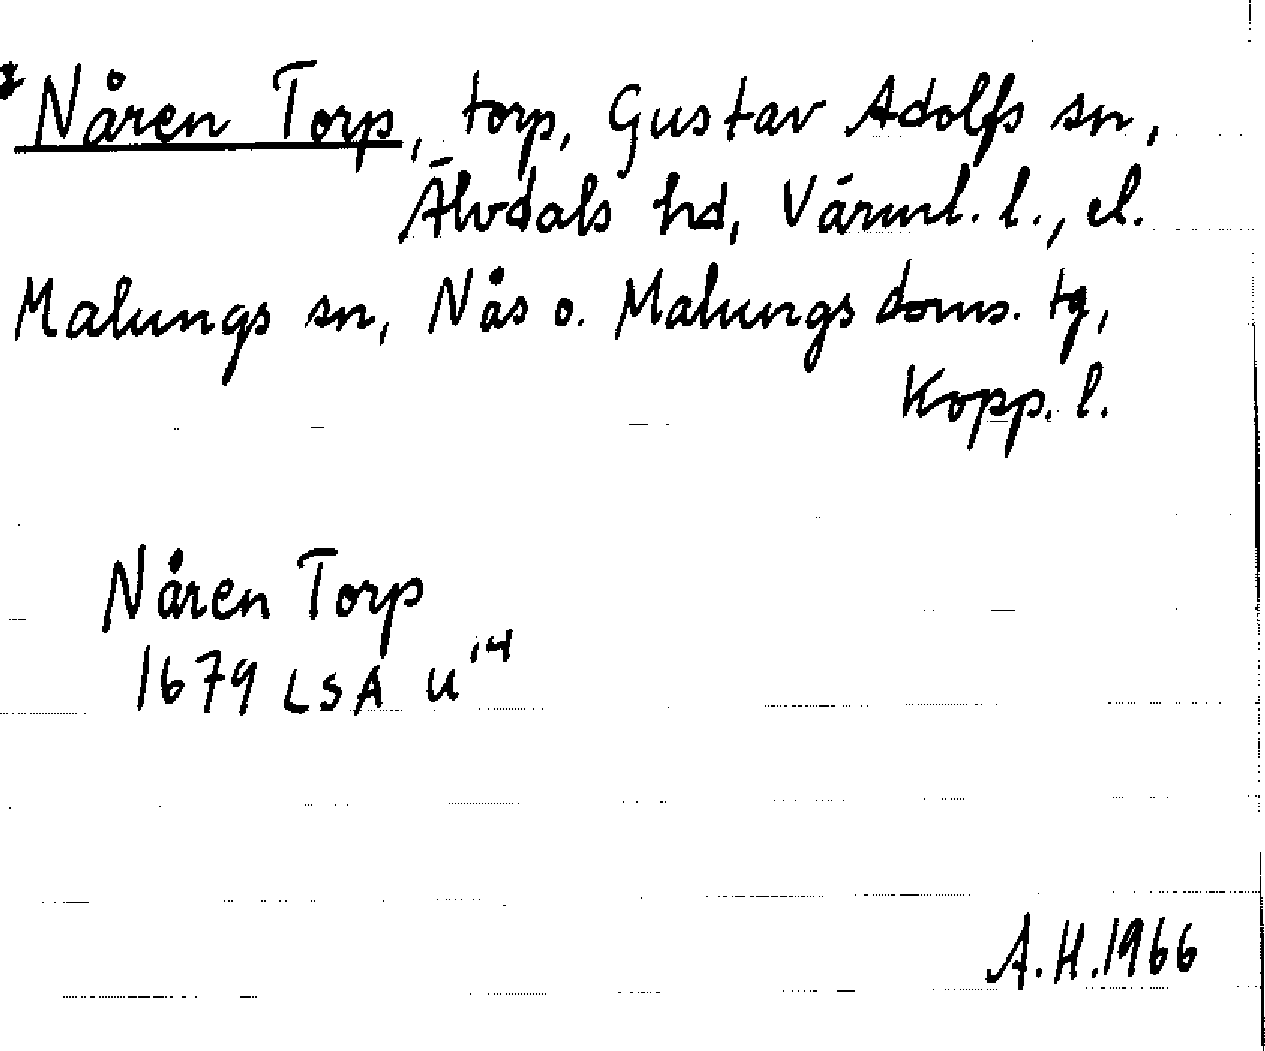 Nåren Torp, torp, Gustav Adolfs sn,
Älvdals hd, Värml. l., el.
Malungs sn, Nås o. Malungs doms. tg,
Kopp. l.
Nåren Torp
1679 LSA U 14
A.H.1966